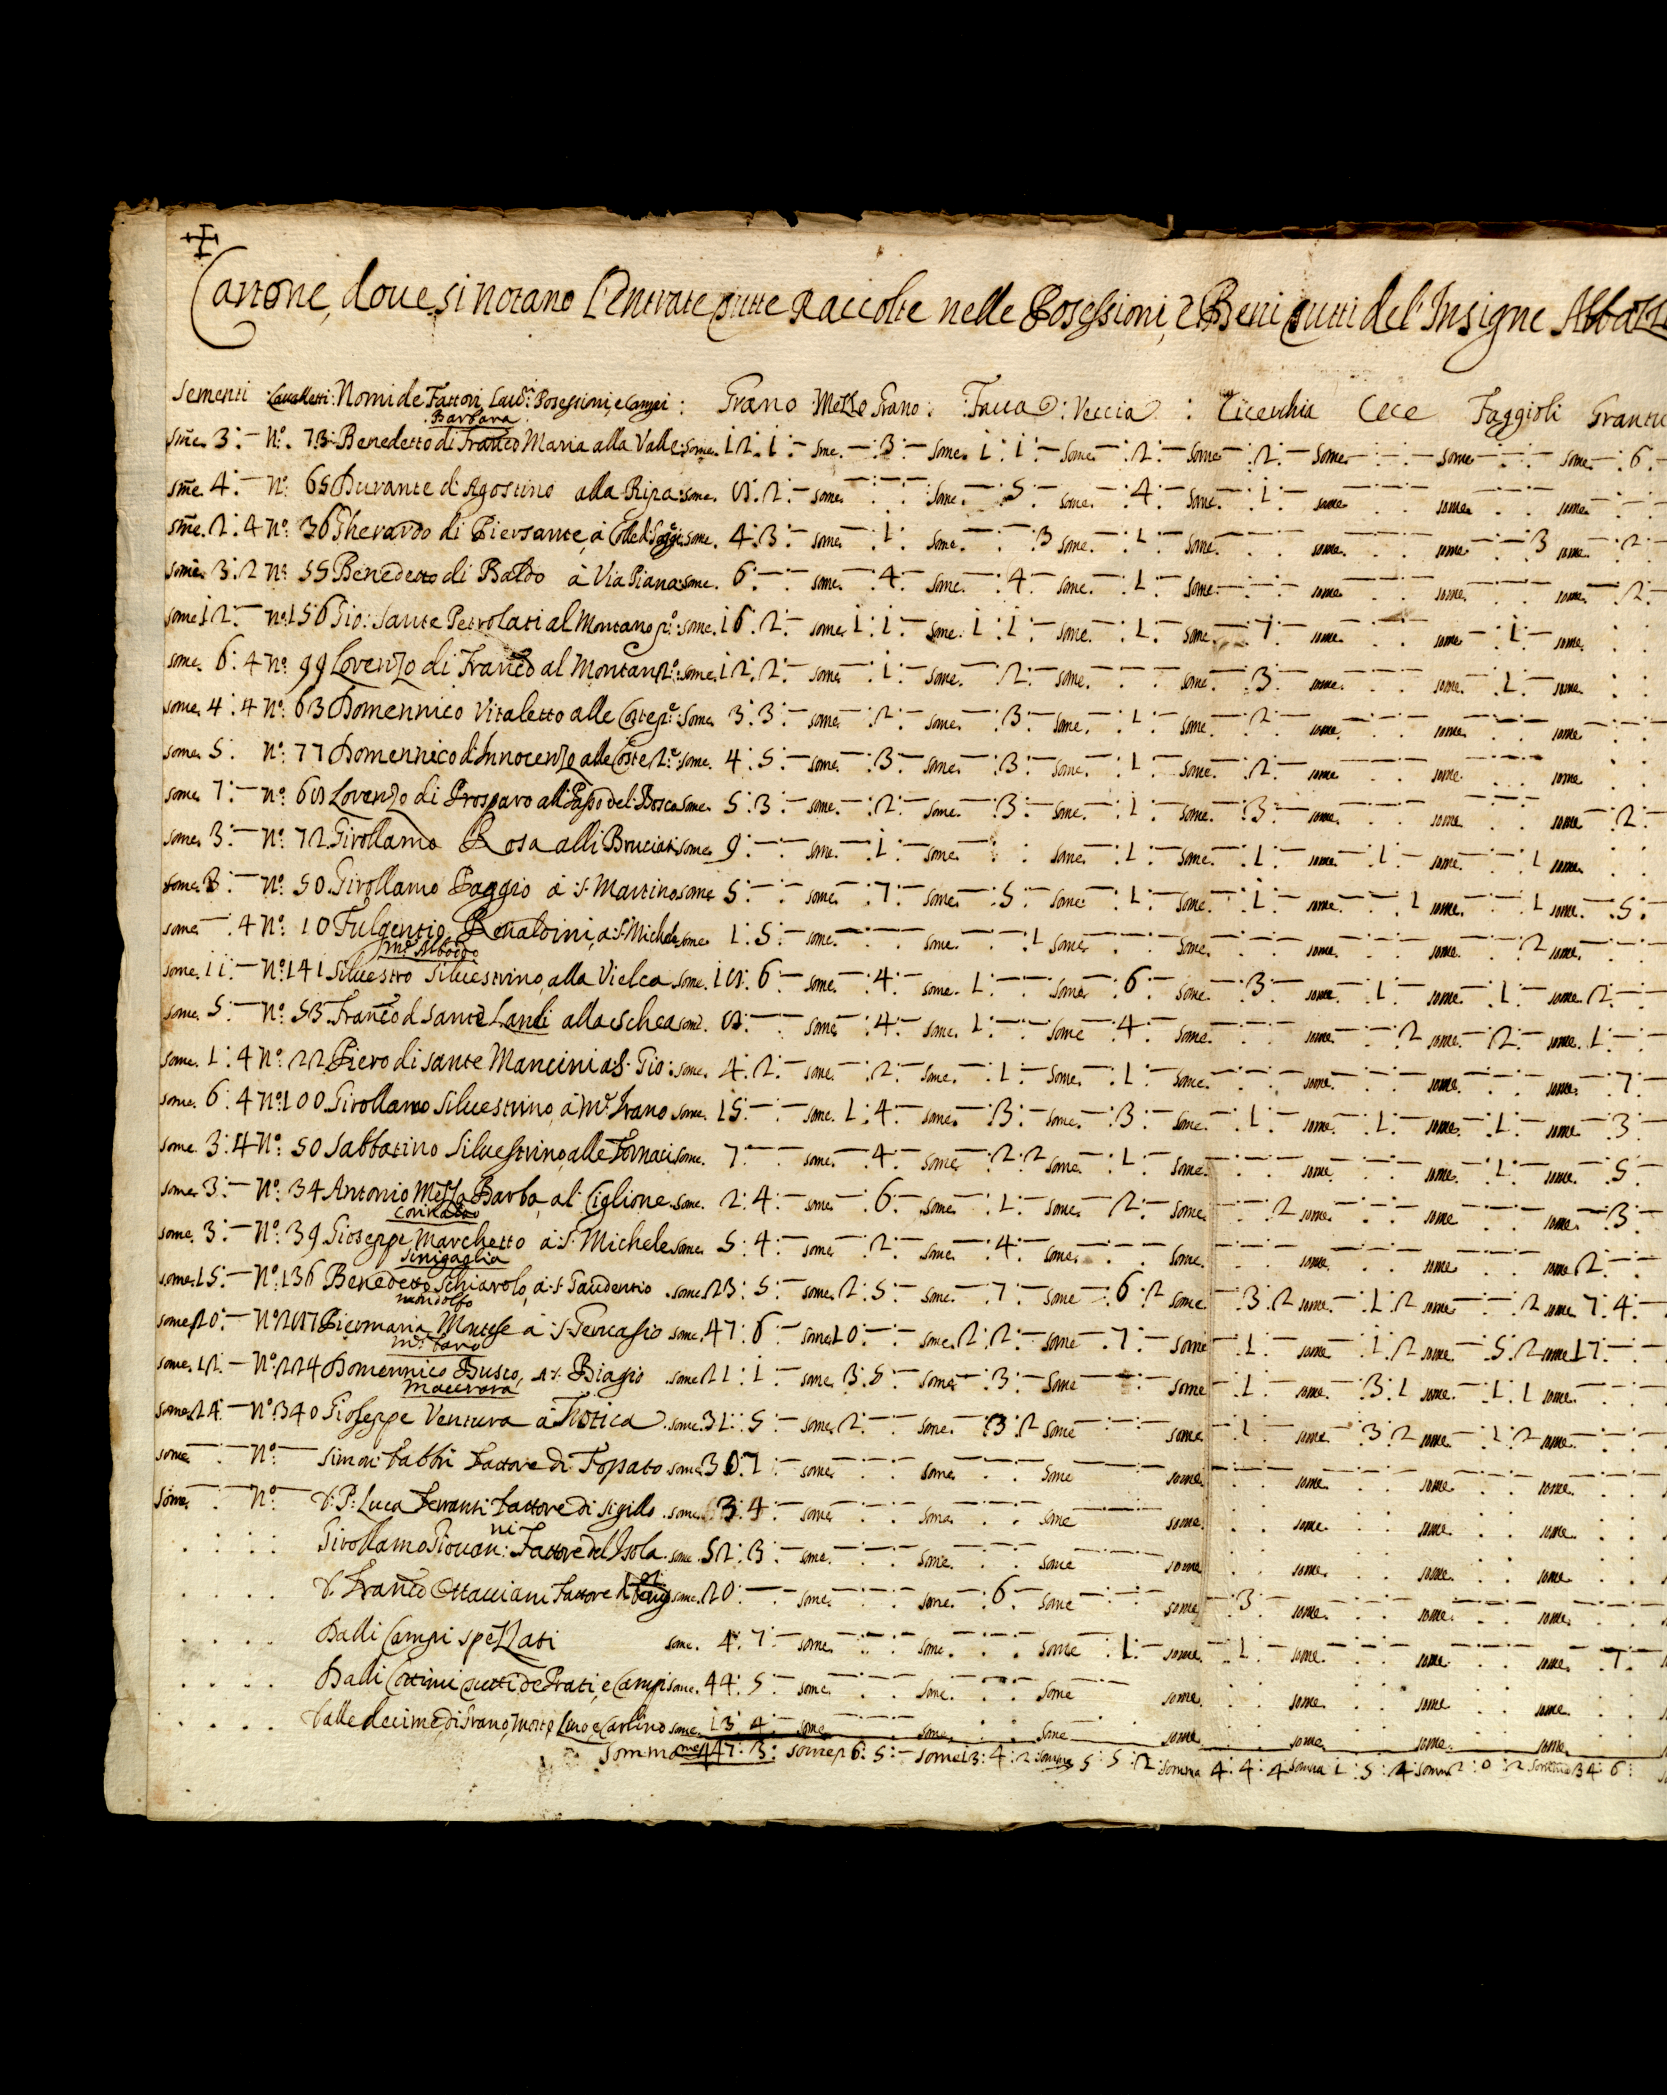 Cartone, doue si notano l'Entrate tutte Raccolte nelle Possessioni, e Beni tutti del' Insigne
Sementi Cavalletti: Nomi de Fattori, Possessioni, e Campi : Grano Mezzo Grano : Faua : Veccia : Cicerchia Cece Faggioli
Barbara
sme. 3 : — No. 73 Benedetto di Franco Maria alla Valle: some. 12. 1 : — sme. — . 3 : — some. 1 : 1 : — some. — : 2 : — some — : 2 : — some — : — . — some — : — . — some — : 6 . —
sme. 4 : — No: 65 Durante di Agostino alla Ripa: some. 8 : 2 : — some. — : — . — some. — . 5 : — some. — : 4 : — some. — : 1 : — some — . — some — . — some — . —
sme. 2 : 4 No: 36 Gherardo di Piersante, à some. 4 : 3 : — some — : 1 : — some. — : — 3 some. — : 1 : — some. — : — some. — : — some — : — 3 some — : 2 : —
some. 3 : 2 No: 55 Benedetto di Baldo à Via Piana: some. 6 : — : — some. — : 4 : — some — : 4 : — some. — : 1 : — some — : — some — : — some. — some — : 2 : —
some 12 : — No: 156 Gio: Sante Petrolati al Montano po: some. 16 . 2 : — some. 1 : 1 : — some. 1 : 1 : — some. — : 1 . — some. — : 7 : — some — some — : 1 : — some.
some. 6 : 4 No. 99 Lorenzo di Franco al Montano 2o: some. 12 : 2 : — some — : 1 : — some. — : 2 : — some. — some — : 3 : — some. — some. — : 1 . — some
some. 4 : 4 No: 63 Domennico Vitaletto alle Coste po: some 3 : 3 : — some — : 2 : — some — : 3 : — some. — : 1 : — some. — : 2 : — some. — some. — some. —
some. 5 : No: 77 Domennico d'Innocenzo alle Coste 2o: some. 4 : 5 : — some. — : 3 : — some. — : 3 : — some. — : 1 : — some. — : 2 : — some — some — some
some. 7 : — No. 68 Lorenzo di Prosparo all Passo del Bosco some. 5 : 3 : — some. — : 2 : — some. — : 3 : — some. — : 1 : — some. — : 3 : — some. — some — some — : 2 : —
some. 3 : — No: 72 Girollamo Rosa alli Bruciati some. 9 : — : — some. — : 1 : — some — some. — : 1 : — some. — : 1 : — some — : 1 : — some. — : — 1 some.
some. 3 : — No: 50. Girollamo Paggio à S. Martino some 5 : — : — some — : 7 : — some — : 5 : — some — : 1 : — some. — : 1 : — some. — : — 1 some. — : — 1 some. — : 5 : —
some — . 4 No: 10 Fulgentio Renaldini, a S. Michele some 1 : 5 : — some. — some. — : — 1 some — some. — some. — some. — : — 2 some. —
Me: Alboddo
some. 11 : — No: 141 Siluestro Siluestrino, alla Vielca some. 18 : 6 : — some. — : 4 : — some. 1 : — : — some — : 6 : — some — : 3 : — some — : 1 : — some — : 1 : — some. 2 : — : —
some. 5 : — No: 53. Franco di Sante Landi alla Eschea some. 8 : — : — some — : 4 : — some. 1 : — : — some — : 4 : — some. — some — : — 2 some. — 2 : — some. 1 : — : —
some. 1 : 4 No: 22 Piero di sante Mancini a S. Gio: some. 4 : 2 : — some. — : 2 : — some. — : 1 : — some. — : 1 : — some. — some. — some. — some. — : 7 : —
some. 6 : 4 No: 100. Girollamo Siluestrino, à Me Frano some 15 : — : — some. 1 : 4 : — some. — : 3 : — some. — : 3 : — some. — : 1 : — some. — : 1 : — some. — : 1 : — some — : 3 : —
some. 3 : 4 No. 50 Sabbatino Siluestrino, alle Fornaci some. 7 : — : — some. — : 4 : — some — : 2 : 2 some — : 1 : — some. — some. — some. — : 1 : — some — : 5 : —
some 3 : — No: 34 Antonio Mezza Barba, al Ciglione some. 2 : 4 : — some — : 6 : — some — : 1 : — some — : 2 : — some — : — 2 some. — some — some — : 3 : —
Corinaldo
some. 3 : — No: 39 Gioseppe Marchetto à S. Michele some 5 : 4 : — some — : 2 : — some — : 4 : — some. — some. — some. — some — some 2 : — : —
Sinigaglia
some. 15 : — No: 136 Benedetto Schiarolo, à S. Gaudentio some 23 : 5 : — some. 2 : 5 : — some — : 7 : — some — : 6 : 2 some — : 3 : 2 some — : 1 : 2 some — : — 2 some 7 : 4 : —
mondolfo
some 20 : — No: 287 Piermaria Montese à S. Geruasio some. 47 : 6 : — some 10 : — : — some. 2 : 2 : — some — : 7 : — some — : 1 : — some — : 1 : 2 some — : 5 : 2 some 17 : — : —
some. 12 : — No: 224 Domennico Busco, a S. Biagio some 21 : 1 : — some. 3 : 5 : — some — : 3 : — some — some — : 1 : — some — : 3 : 1 some. — : 1 : 1 some —
Macerara
some. 24 : — No: 340 Gioseppe Ventura à some. 31 : 5 : — some 2 : — : — some. — : 3 : 2 some — some — : 1 : — some — : 3 : 2 some — : 1 : 2 some. —
some — : — No: — Simon Fabbri Fattore di Fossato some. 30 : 7 : — some — some — some — some — some. — some. — some. —
some. — : — No: — D. P. Luca Feranti Fattore di Sigillo some. 3 : 4 : — some — some. — some — some. some. some. some.
Girollamo Giouan:ni Fattore del Isola some 52 : 3 : — some. — some — some — some some. some. some.
D. Franco Ottauiani Fattore some. 20 : — : — some. — some. — : 6 : — some — some — : 3 : — some. some. some.
Dalli Campi spezzati some. 4 : 7 : — some. — some. — some — : 1 : — some. — : 1 : — some. — some. — some. — : 7 : —
Dalli Cottimi tutti de Prati, e Campi some. 44 : 5 : — some. — some. — some some. some. some some.
Dalle decime di Grano, some. 13 : 4 : — some — some — some some. some. some. some.
Somma some 447 : 3 : some 26 : 5 : — some 13 : 4 : 2 somma 5 : 5 : 2 somma 4 : 4 : 4 somma 1 : 5 : 4 somma 2 : 0 : 2 somma 34 : 6 :